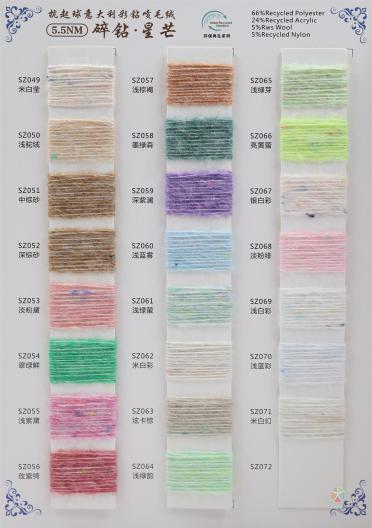 抗起球意大利彩钻喷毛绒
5.5NM 碎钻·星芒
环保再生系列
66%Recycled Polyester
24%Recycled Acrylic
5%Rws Wool
5%Recycled Nylon
SZ049
米白莹
SZ050
浅驼绒
SZ051
中棕砂
SZ052
深棕砂
SZ053
淡粉黛
SZ054
翠绿鲜
SZ055
浅紫黛
SZ056
玫紫绮
SZ057
浅棕褐
SZ058
墨绿森
SZ059
深紫澜
SZ060
浅蓝雾
SZ061
浅绿萤
SZ062
米白彩
SZ063
炫卡棕
SZ064
浅绿韵
SZ065
浅绿芽
SZ066
亮黄萤
SZ067
银白彩
SZ068
淡粉绯
SZ069
浅白彩
SZ070
浅蓝彩
SZ071
米白幻
SZ072